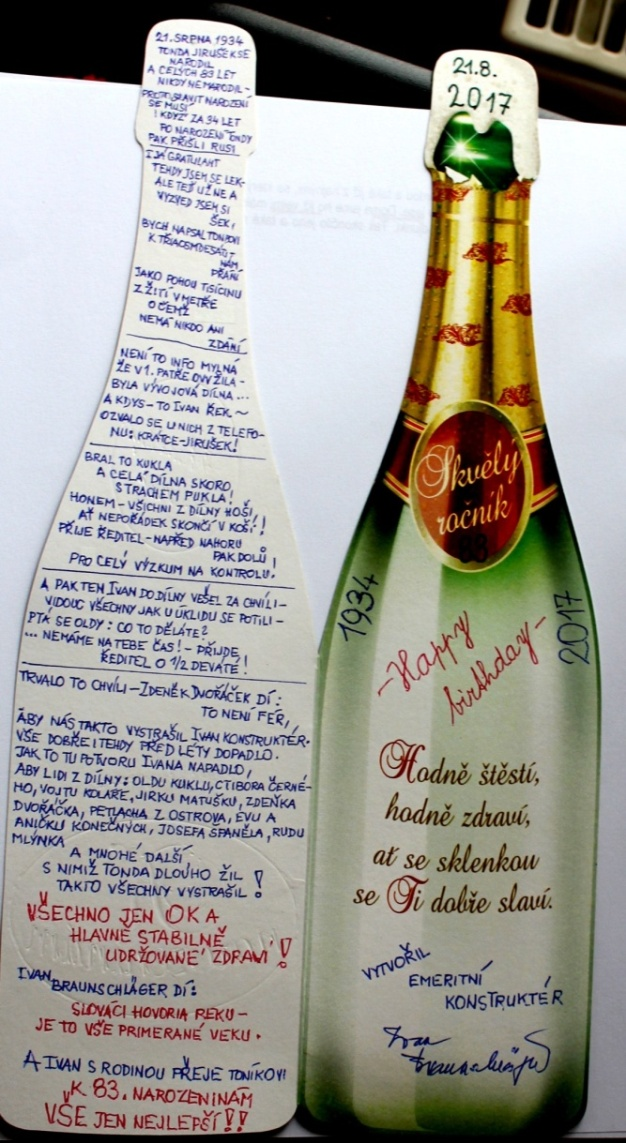 21. SRPNA 1934
TONDA JIRUŠEK SE
NARODIL
A CELÝCH 83 LET
NIKDY NEMARODIL-
NAROZENÍ
SE MUSÍ
I KDYŽ ZA 34 LET
PO NAROZENÍ TONDY
PAK PŘIŠLI RUSI
I JÁ GRATULANT
TEHDY JSEM SE LEK-
ALE TEĎ UŽ NE A
VYZVED JSEM SI
ŠEK,
BYCH NAPSAL TONÍKOVI
K TŘIAOSMDESÁTI-
NÁM
PŘÁNÍ
JAKO POUHOU TISÍCINU
Z ŽITÍ V METŘE
O ČEMŽ
NEMÁ NIKDO ANI
ZDÁNÍ
NENÍ TO INFO MYLNÁ
ŽE V 1. PATŘE OVY ŽILA-
BYLA VÝVOJOVÁ DÍLNA...
A KDYS-TO IVAN ŘEK~
OZVALO SE U NICH Z TELEFO-
NU: KRÁTCE-JIRUŠEK!
BRAL TO KUKLA
A CELÁ DÍLNA SKORO
STRACHEM PUKLA!
HONEM-VŠICHNI Z DÍLNY HOŠI!
AŤ NEPOŘÁDEK SKONČÍ V KOŠI!
PŘIJE ŘEDITEL-NAPŘED NAHORU
PAK DOLŮ!
PRO CELÝ VÝZKUM NA KONTROLU.
A PAK TEN IVAN DO DÍLNY VEŠEL ZA CHVÍLI-
VIDOUC VŠECHNY JAK U ÚKLIDU SE POTILI-
PTÁ SE OLDY: CO TO DĚLÁTE?
... NEMÁME NA TEBE ČAS!-PŘIJDE
ŘEDITEL O 1/2 DEVÁTÉ!
TRVALO TO CHVÍLI-ZDENĚK DVOŘÁČEK DÍ:
TO NENÍ FÉR,
ABY NÁS TAKTO VYSTRAŠIL IVAN KONSTRUKTÉR.
VŠE DOBŘE I TEHDY PŘED LÉTY DOPADLO.
JAK TO TU POTVORU IVANA NAPADLO,
ABY LIDI Z DÍLNY: OLDU KUKLU, CTIBORA ČERNÉ-
HO, VOJTU KOLÁŘE, JIRKU MATUŠKU, ZDEŇKA
DVOŘÁČKA, PETLACHA Z OSTROVA, EVU A
ANIČKU KONEČNÝCH, JOSEFA ŠPANĚLA, RUDU
MLÝNKA
A MNOHÉ DALŠÍ
S NIMIŽ TONDA DLOUHO ŽIL
TAKTO VŠECHNY VYSTRAŠIL!
VŠECHNO JEN OK A
HLAVNĚ STABILNĚ
UDRŽOVANÉ ZDRAVÍ!
IVAN BRAUNSCHLÄGER DÍ:
SLOVÁCI HOVORIA REKU-
JE TO VŠE PRIMERANÉ VEKU.
A IVAN S RODINOU PŘEJE TONÍKOVI
K 83. NAROZENINÁM
VŠE JEN NEJLEPŠÍ!!
21.8.
2017
Skvělý
ročník
83
1934
2017
-Happy
birthday-
Hodně štěstí,
hodně zdraví,
ať se sklenkou
se Ti dobře slaví.
VYTVOŘIL
EMERITNÍ
KONSTRUKTÉR
Ivan
Braunschläger